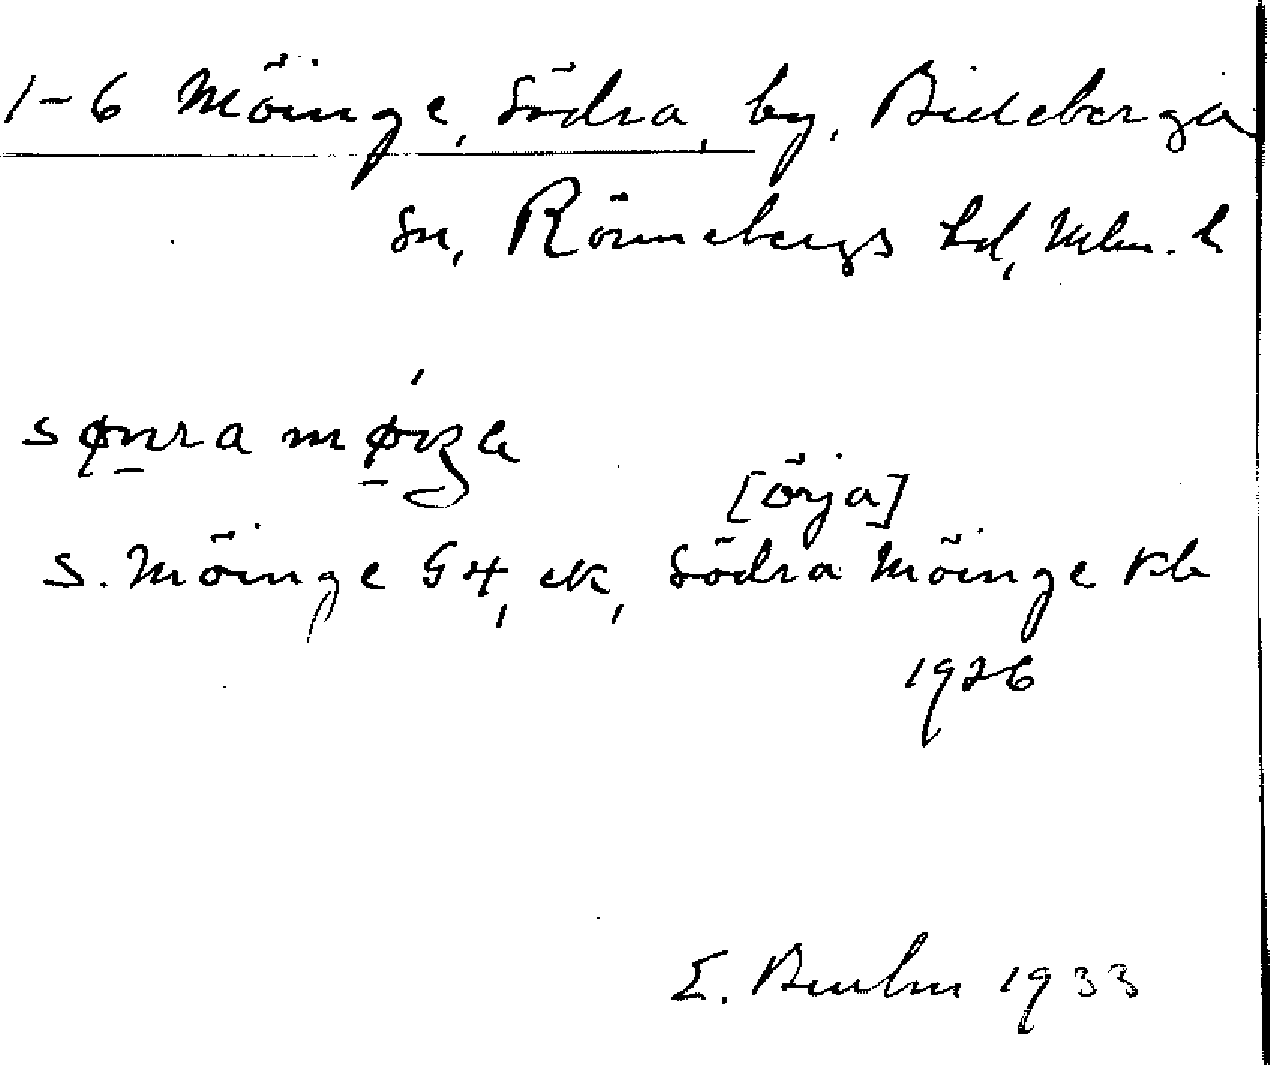 1-6 Möinge, Södra, by, Billeberga
sn, Rönnebergs hd, Mlm. l
[örja]
S. Möinge G4, ek, Södra Möinge kb
1926
1933